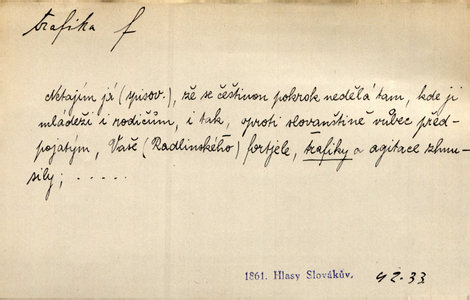 trafika f
Netajím já (spisov.), že se češtinou pokrok nedělá tam, kde ji
mládeži i rodičům, i tak, oproti slovanštině vůbec před-
pojatým, Vaše (Radlinského) fortjele, trafiky a agitace zhnu-
sily; .....
1861. Hlasy Slovákův. 42-33